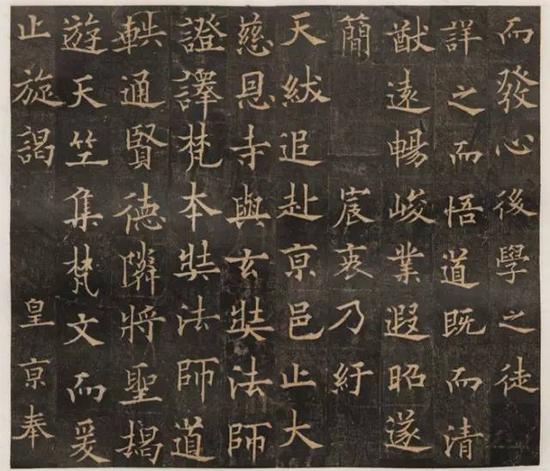 而發心後學之徒
詳之而悟道既而清
猷遠暢峻業遐昭遂
簡宸衷乃紆
天紱追赴京邑止大
慈恩寺與玄奘法師
證譯梵本奘法師道
軼通賢德隣將聖搨
遊天竺集梵文而爰
止旋謁皇京奉